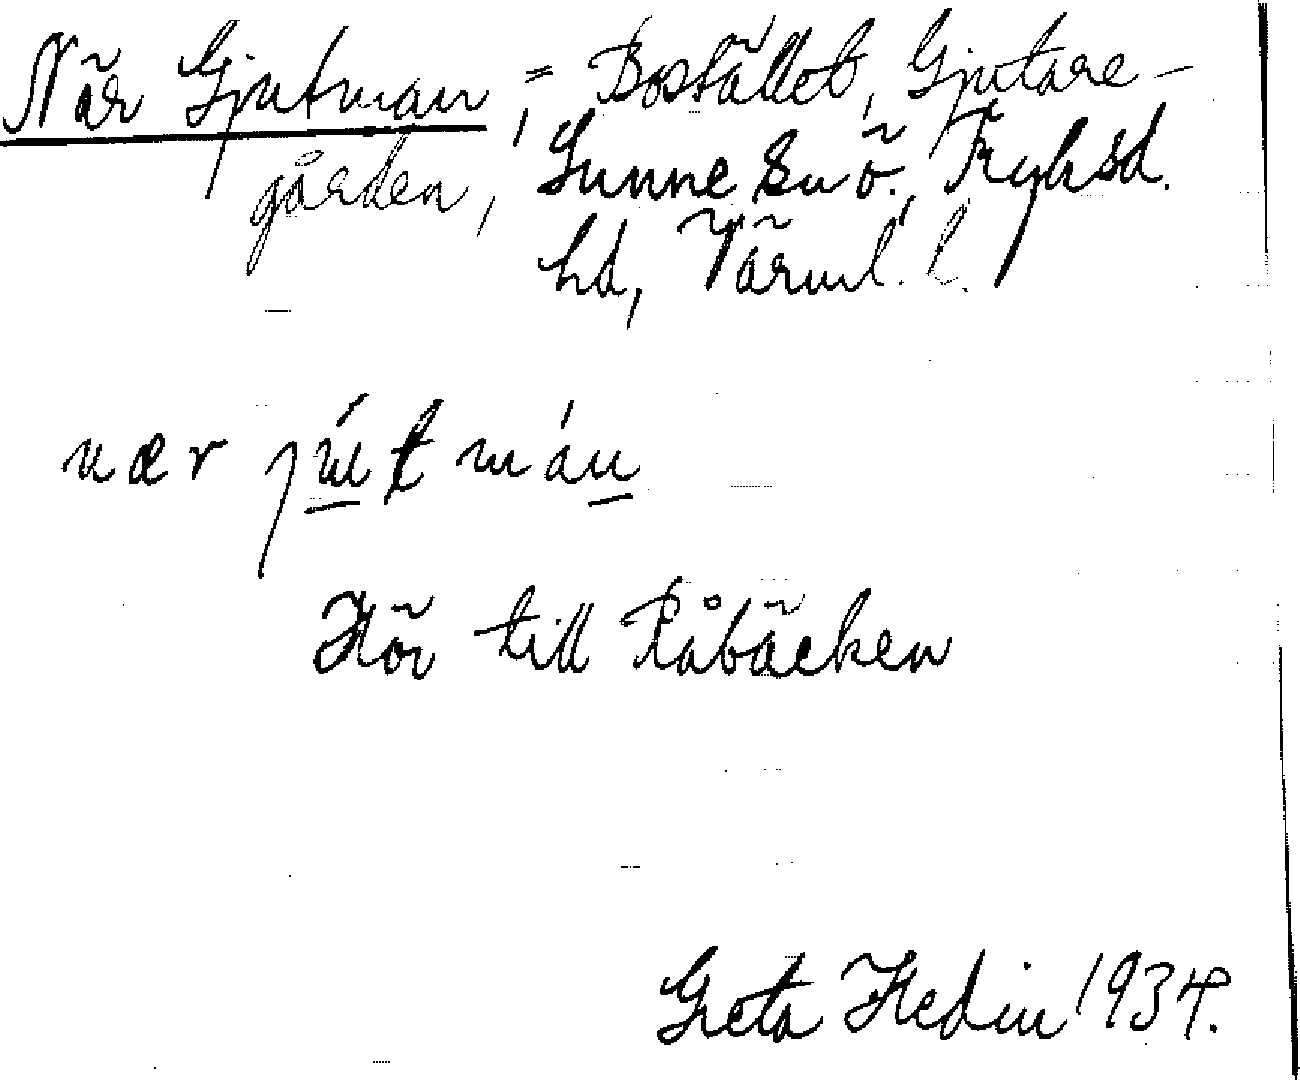 När Gjutman, = Bostället, Gjutare-
gården, Sunne sn ö., Fryksd.
hd, Värml. l.
nær jútmán
Hör till Råbäcken
Greta Hedin 1934.